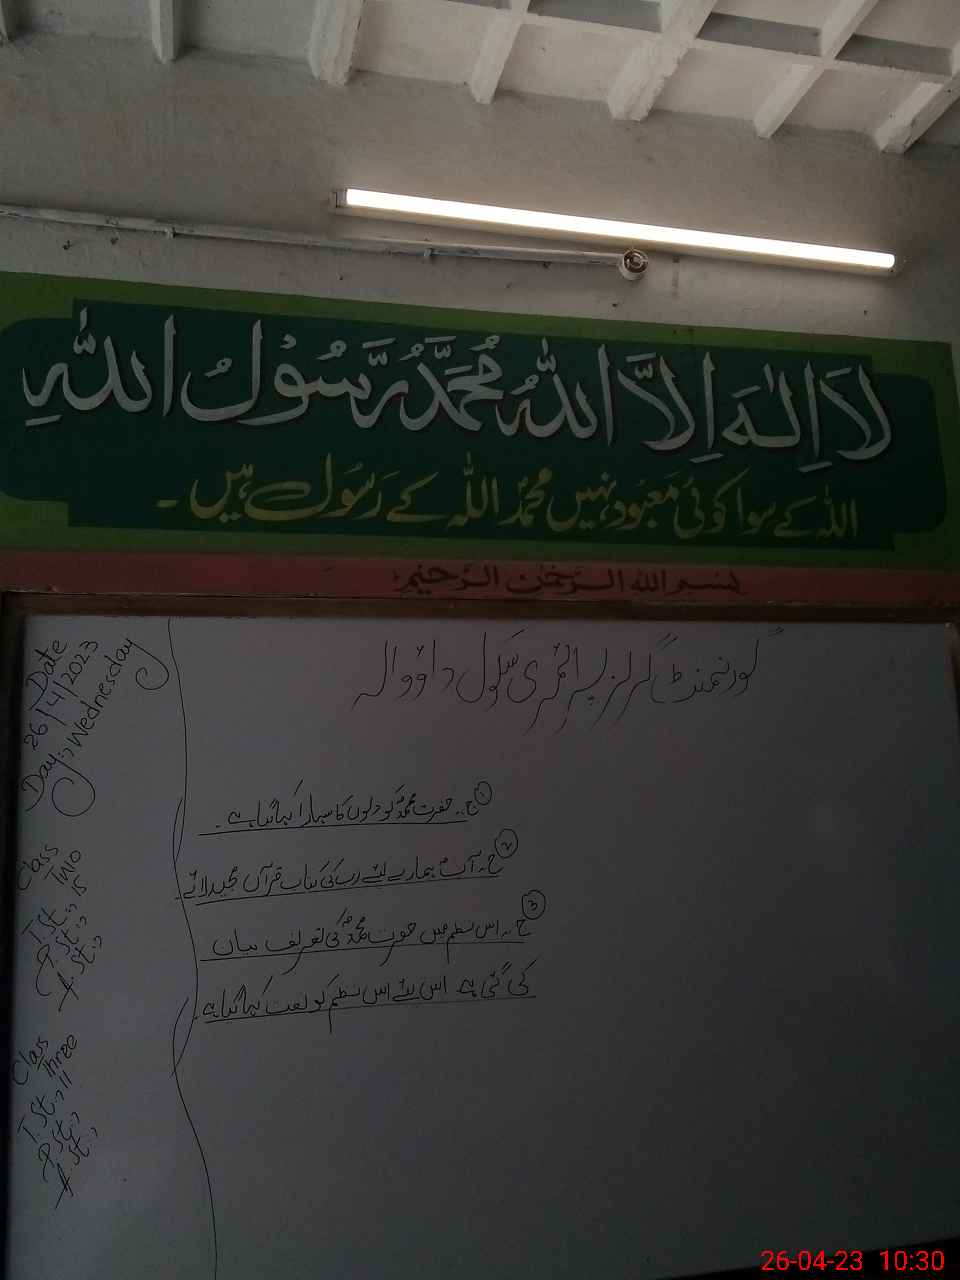 لَا اِلٰہَ اِلَّا اللہُ مُحَمَّدٌ رَّسُوْلُ اللہِ
اللہ کے سوا کوئی معبود نہیں محمدؐ اللہ کے رَسُول ہیں ۔
بسم اللہ الرحمٰن الرحیم
گورنمنٹ گرلز پرائمری سکول داؤوالہ
Date
26/4/2023
Day:> Wednesday
① ج۔۔ حضرت محمدؐ کو دلوں کا سہارا کہا گیا ہے ۔
② ج۔ آپؐ ہمارے لیئے رب کی کتاب قرآن مجید لائے۔
③ ج۔۔ اس نظم میں حضرت محمدؐ کی تعریف بیان
کی گئی ہے اس لئے اس نظم کو نعت کہا گیا ہے۔
Class
Two
T.St:> 15
P.St:>
A.St:>
Class
Three
T.St:> 11
P.St:>
A.St:>
26-04-23 10:30